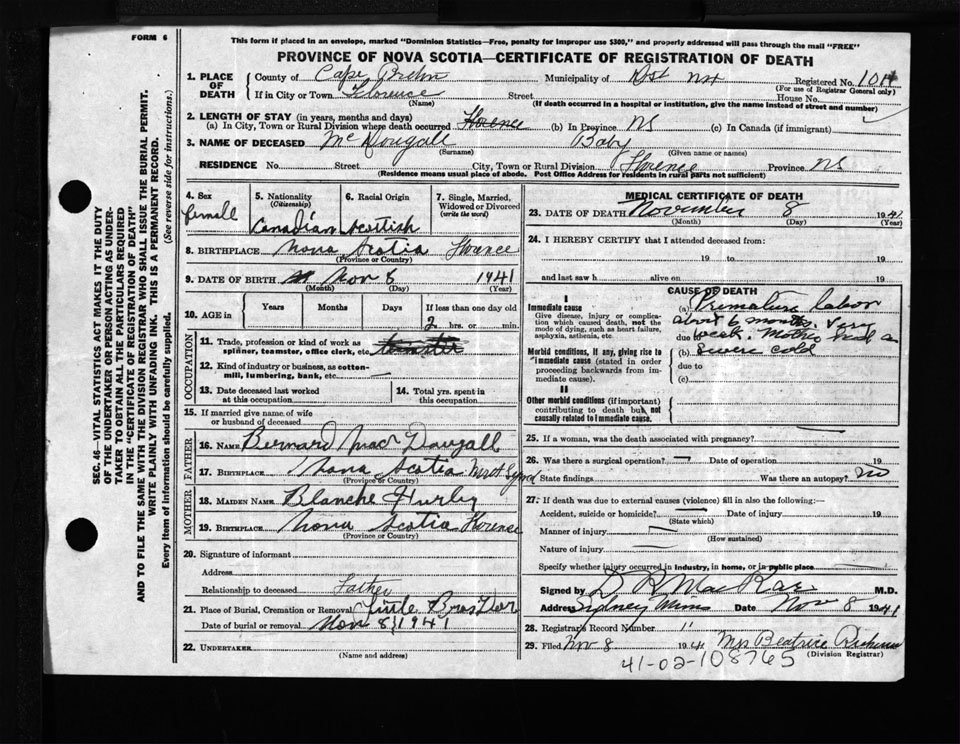 FORM 6
This form if placed in an envelope, marked "Dominion Statistics—Free, penalty for improper use $300," and properly addressed will pass through the mail "FREE"
PROVINCE OF NOVA SCOTIA—CERTIFICATE OF REGISTRATION OF DEATH
SEC. 46—VITAL STATISTICS ACT MAKES IT THE DUTY
OF THE UNDERTAKER OR PERSON ACTING AS UNDER-
TAKER TO OBTAIN ALL THE PARTICULARS REQUIRED
IN THE "CERTIFICATE OF REGISTRATION OF DEATH"
AND TO FILE THE SAME WITH THE DIVISION REGISTRAR WHO SHALL ISSUE THE BURIAL PERMIT.
WRITE PLAINLY WITH UNFADING INK. THIS IS A PERMANENT RECORD.
Every item of information should be carefully supplied. (See reverse side for instructions.)
1. PLACE OF DEATH
County of Cape Breton Municipality of Registered No. 1014
(For use of Registrar General only)
If in City or Town Florence Street House No.
(Name) (If death occurred in a hospital or institution, give the name instead of street and number)
2. LENGTH OF STAY (in years, months and days)
(a) In City, Town or Rural Division where death occurred Florence (b) In Province NS (c) In Canada (if immigrant)
3. NAME OF DECEASED McDougall Baby
(Surname) (Given name or names)
RESIDENCE No. Street City, Town or Rural Division Florence Province NS
(Residence means usual place of abode. Post Office Address for residents in rural parts not sufficient)
4. Sex 5. Nationality (Citizenship) 6. Racial Origin 7. Single, Married, Widowed or Divorced (write the word)
Canadian Scottish
8. BIRTHPLACE Nova Scotia Florence
(Province or Country)
9. DATE OF BIRTH Nov 8 1941
(Month) (Day) (Year)
10. AGE in Years Months Days If less than one day old
2 hrs. or min.
OCCUPATION
11. Trade, profession or kind of work as
spinner, teamster, office clerk, etc.
12. Kind of industry or business, as cotton-
mill, lumbering, bank, etc.
13. Date deceased last worked at this occupation 14. Total yrs. spent in this occupation
15. If married give name of wife
or husband of deceased
FATHER
16. NAME Bernard MacDougall
17. BIRTHPLACE Nova Scotia
(Province or Country)
MOTHER
18. MAIDEN NAME Blanche Hurley
19. BIRTHPLACE Nova Scotia Florence
(Province or Country)
20. Signature of informant
Address
Relationship to deceased Father
21. Place of Burial, Cremation or Removal Little Bras d'or
Date of burial or removal Nov 8, 1941
22. UNDERTAKER
(Name and address)
MEDICAL CERTIFICATE OF DEATH
23. DATE OF DEATH November 8 1941
(Month) (Day) (Year)
24. I HEREBY CERTIFY that I attended deceased from:
19 to 19
and last saw h alive on 19
CAUSE OF DEATH
I
Immediate cause
Give disease, injury or complica-
tion which caused death, not the
mode of dying, such as heart failure,
asphyxia, asthenia, etc.
(a) Premature labor
about 6 months. Very
due to weak. Mother had a
Morbid conditions, if any, giving rise to
immediate cause (stated in order
proceeding backwards from im-
mediate cause).
(b) Severe cold
due to
(c)
II
Other morbid conditions (if important)
contributing to death but not
causally related to immediate cause.
25. If a woman, was the death associated with pregnancy?
26. Was there a surgical operation? Date of operation 19
State findings Was there an autopsy? no
27. If death was due to external causes (violence) fill in also the following:—
Accident, suicide or homicide? Date of injury 19
(State which)
Manner of injury
(How sustained)
Nature of injury
Specify whether injury occurred in industry, in home, or in public place
Signed by D R MacRae M.D.
Address Sydney Mines Date Nov 8 1941
28. Registrar's Record Number 11
29. Filed Nov 8 1941 Mrs Beatrice
(Division Registrar)
41-02-108765